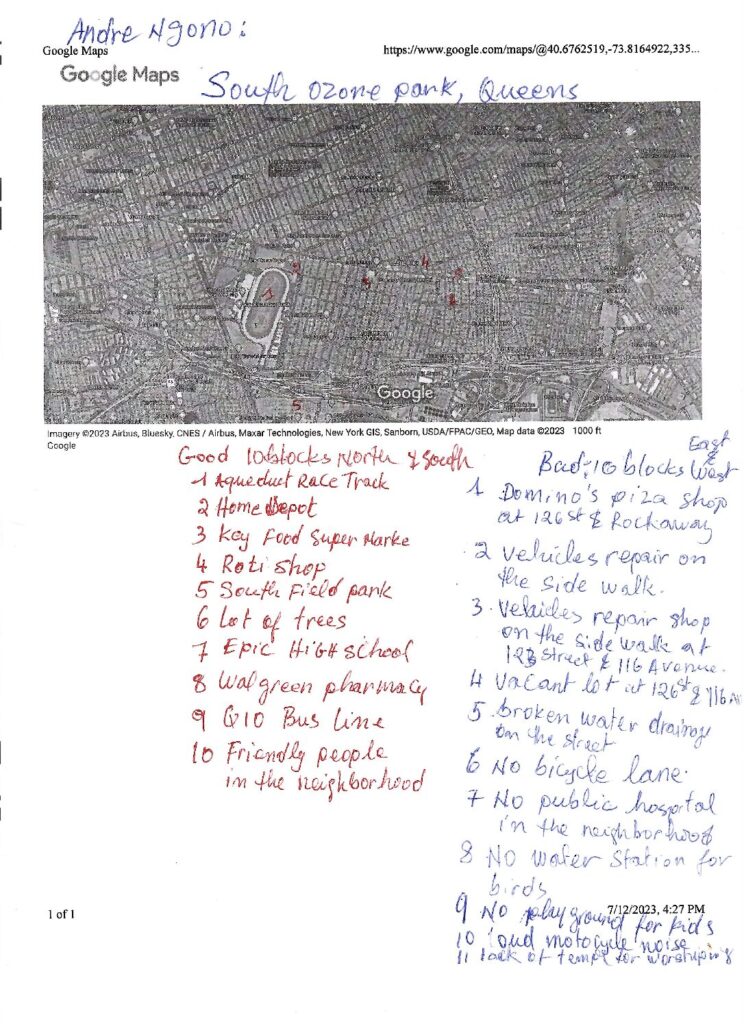 Andre Ngono:
Google Maps
https://www.google.com/maps/@40.6762519,-73.8164922,335...
Google Maps
South ozone park, Queens
Google
Imagery ©2023 Airbus, Bluesky, CNES / Airbus, Maxar Technologies, New York GIS, Sanborn, USDA/FPAC/GEO, Map data ©2023 1000 ft
Google
Good 10 blocks North & South
1 Aqueduct Race Track
2 Home Depot
3 Key Food Super Marke
4 Roti Shop
5 South Field park
6 Lot of trees
7 Epic HiGH school
8 Walgreen pharmacy
9 Q10 Bus Line
10 Friendly people
in the neighborhood
East
&
Bad: 10 blocks West
1 Domino's piza shop
at 126 st & Rockaway
2 vehicles repair on
the side walk.
3. Vehicles repair shop
on the side walk at
123 street & 116 Avenue.
4 Vacant lot at 126 st & 116 Av
5. broken water drainage
on the street
6 No bicycle lane.
7 No public hospital
in the neighborhood
8 No water station for
birds
1 of 1
7/12/2023, 4:27 PM
9 No playground for kids
10 loud motocycle noise
11 lack of temple for worshiping